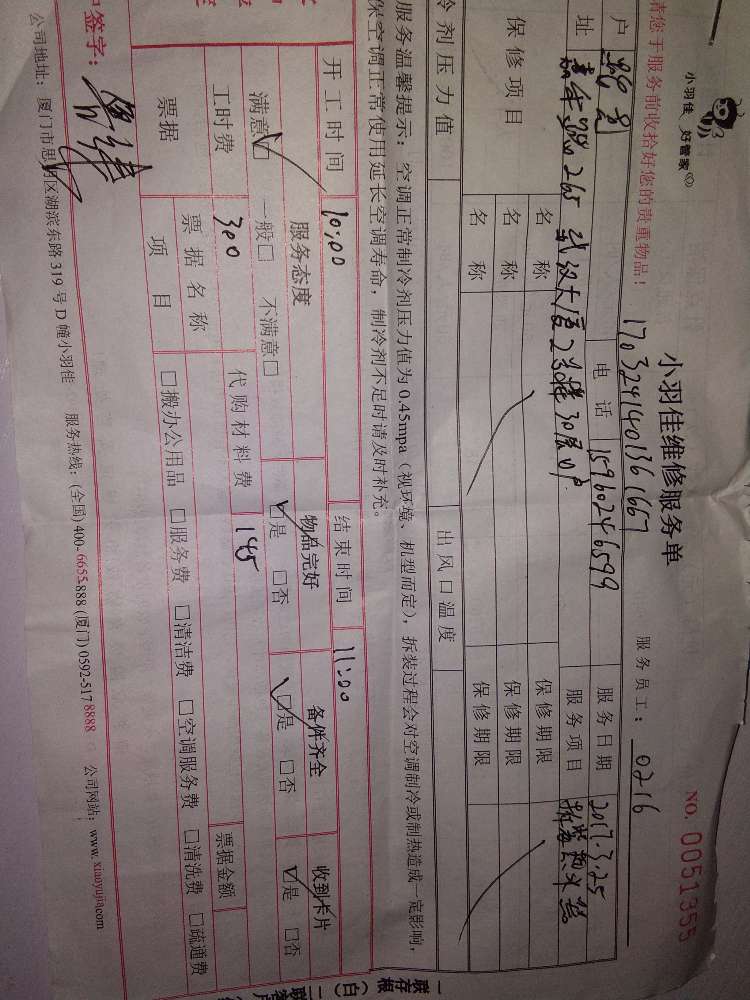 小羽佳 好管家
小羽佳维修服务单
NO. 0051355
170324140136 1667
服务员工: 0216
请您于服务前收拾好您的贵重物品!
户
电话 15960246599
服务日期 2017.3.25
址 嘉禾路265 武汉大厦2号楼30层UP.
服务项目
保修项目
名称
保修期限
名称
保修期限
名称
保修期限
冷剂压力值
出风口温度
服务温馨提示: 空调正常制冷剂压力值为0.45mpa(视环境、机型而定),拆装过程会对空调制冷或制热造成一定影响,
保空调正常使用延长空调寿命,制冷剂不足时请及时补充。
开工时间 10:00 结束时间 11:00
服务态度 物品完好 备件齐全 收到卡片
满意☑ 一般□ 不满意□ ☑是 □否 ☑是 □否 ☑是 □否
工时费 300 代购材料费 145
票据
票据名称
票据金额
项目
□搬办公用品 □服务费 □清洁费 □空调服务费 □清洗费 □疏通费
签字:
公司地址: 厦门市思明区湖滨东路319号D幢小羽佳 服务热线: (全国)400-6655-888 (厦门)0592-517 8888 公司网站: www.xiaoyujia.com
一联存根(白)二联客户